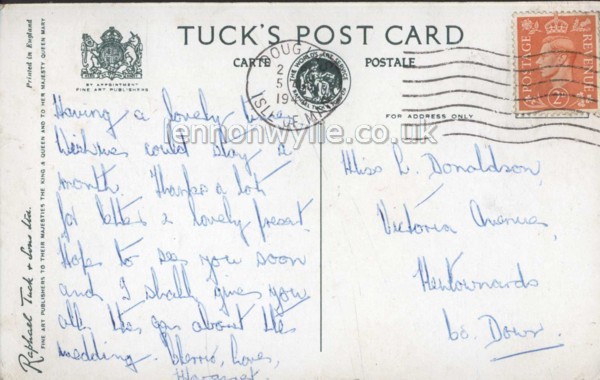 TUCK'S POST CARD
CARTE POSTALE
BY APPOINTMENT
FINE ART PUBLISHERS
FOR ADDRESS ONLY
Printed in England
Raphael Tuck & Sons Ltd.
FINE ART PUBLISHERS TO THEIR MAJESTIES THE KING & QUEEN AND TO HER MAJESTY QUEEN MARY
DOUGLAS
ISLE OF MAN
POSTAGE
REVENUE
2D
lennonwylie.co.uk
Having a lovely time
Wish we could stay a
month. Thanks a lot
for letter & lovely present.
Hope to see you soon
and I shall give you
all the gen about the
wedding. Cheerio, Love,
Margaret
Miss L. Donaldson,
Victoria Avenue,
Newtownards
Co. Down.